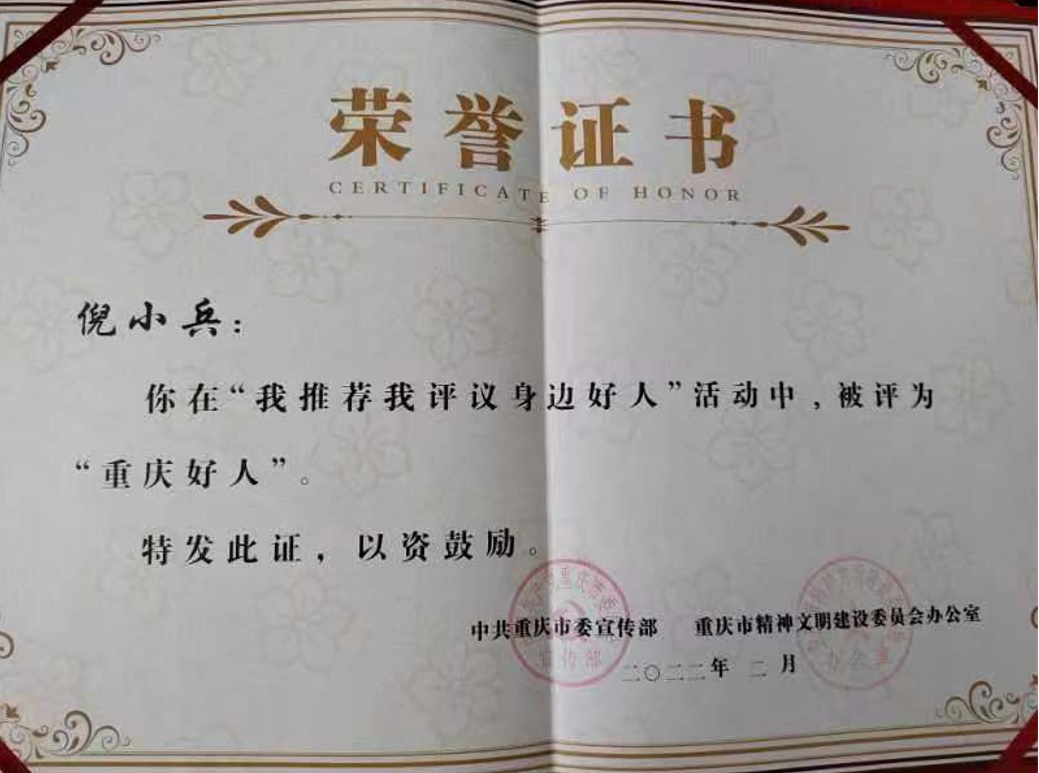 荣誉证书
CERTIFICATE OF HONOR
倪小兵：
你在“我推荐我评议身边好人”活动中，被评为
“重庆好人”。
特发此证，以资鼓励。
中共重庆市委宣传部 重庆市精神文明建设委员会办公室
二〇二二年 二月
宣传部